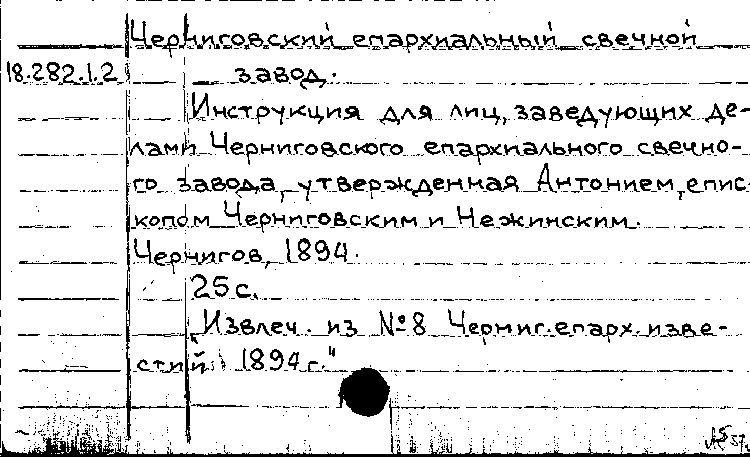 Черниговский епархиальный свечной
18.282.1.2 завод.
Инструкция для лиц, заведующих де-
лами Черниговского епархиального свечно-
го завода, утвержденная Антонием, епис-
копом Черниговским и Нежинским.
Чернигов, 1894.
25 с.
„Извлеч. из №8 Черниг. епарх. изве-
стий 1894 г."